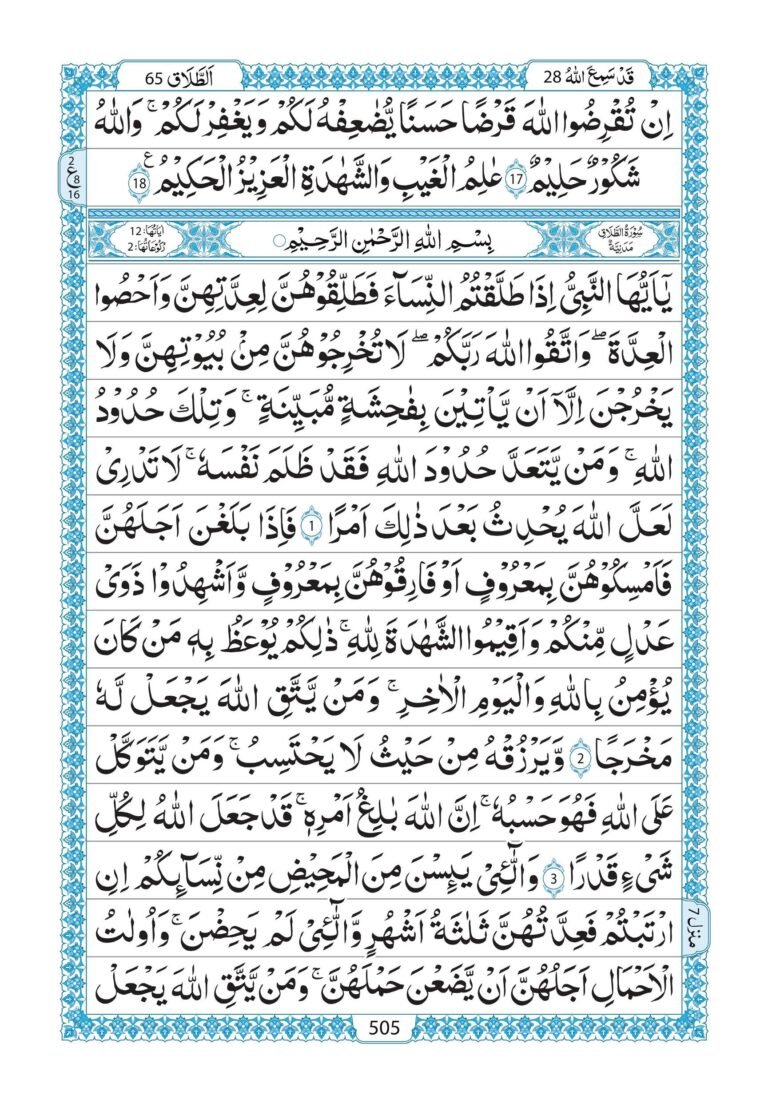 قَدْ سَمِعَ اللّٰهُ 28
اَلطَّلَاق 65
اِنْ تُقْرِضُوا اللّٰهَ قَرْضًا حَسَنًا يُّضٰعِفْهُ لَكُمْ وَيَغْفِرْ لَكُمْ ؕ وَاللّٰهُ
شَكُوْرٌ حَلِيْمٌ ۙ 17 عٰلِمُ الْغَيْبِ وَالشَّهٰدَةِ الْعَزِيْزُ الْحَكِيْمُ ع 18
2
ع 8
16
سُوْرَةُ الطَّلَاقِ مَدَنِيَّةٌ
بِسْمِ اللّٰهِ الرَّحْمٰنِ الرَّحِيْمِ
اٰيَاتُهَا: 12
رُكُوْعَاتُهَا: 2
يٰۤاَيُّهَا النَّبِىُّ اِذَا طَلَّقْتُمُ النِّسَآءَ فَطَلِّقُوْهُنَّ لِعِدَّتِهِنَّ وَاَحْصُوا
الْعِدَّةَ ۚ وَاتَّقُوا اللّٰهَ رَبَّكُمْ ۚ لَا تُخْرِجُوْهُنَّ مِنْۢ بُيُوْتِهِنَّ وَلَا
يَخْرُجْنَ اِلَّاۤ اَنْ يَّاْتِيْنَ بِفَاحِشَةٍ مُّبَيِّنَةٍ ؕ وَتِلْكَ حُدُوْدُ
اللّٰهِ ؕ وَمَنْ يَّتَعَدَّ حُدُوْدَ اللّٰهِ فَقَدْ ظَلَمَ نَفْسَهٗ ؕ لَا تَدْرِىْ
لَعَلَّ اللّٰهَ يُحْدِثُ بَعْدَ ذٰلِكَ اَمْرًا 1 فَاِذَا بَلَغْنَ اَجَلَهُنَّ
فَاَمْسِكُوْهُنَّ بِمَعْرُوْفٍ اَوْ فَارِقُوْهُنَّ بِمَعْرُوْفٍ وَّاَشْهِدُوْا ذَوَىْ
عَدْلٍ مِّنْكُمْ وَاَقِيْمُوا الشَّهَادَةَ لِلّٰهِ ؕ ذٰلِكُمْ يُوْعَظُ بِهٖ مَنْ كَانَ
يُؤْمِنُ بِاللّٰهِ وَالْيَوْمِ الْاٰخِرِ ؕ وَمَنْ يَّتَّقِ اللّٰهَ يَجْعَلْ لَّهٗ
مَخْرَجًا 2 وَّيَرْزُقْهُ مِنْ حَيْثُ لَا يَحْتَسِبُ ؕ وَمَنْ يَّتَوَكَّلْ
عَلَى اللّٰهِ فَهُوَ حَسْبُهٗ ؕ اِنَّ اللّٰهَ بَالِغُ اَمْرِهٖ ؕ قَدْ جَعَلَ اللّٰهُ لِكُلِّ
شَىْءٍ قَدْرًا 3 وَالّٰٓـئِىْ يَئِسْنَ مِنَ الْمَحِيْضِ مِنْ نِّسَآئِكُمْ اِنِ
ارْتَبْتُمْ فَعِدَّتُهُنَّ ثَلٰثَةُ اَشْهُرٍ وَّالّٰٓـئِىْ لَمْ يَحِضْنَ ؕ وَاُولَاتُ
الْاَحْمَالِ اَجَلُهُنَّ اَنْ يَّضَعْنَ حَمْلَهُنَّ ؕ وَمَنْ يَّتَّقِ اللّٰهَ يَجْعَلْ
منزل 7
505